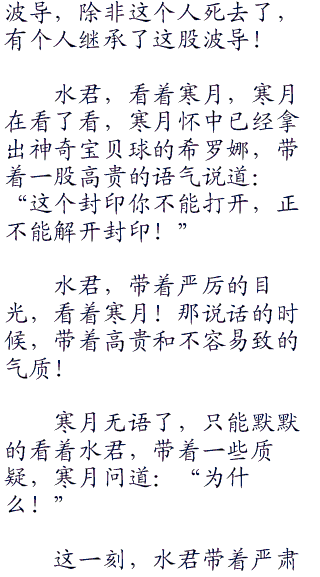 波导，除非这个人死去了，
有个人继承了这股波导！
水君，看着寒月，寒月
在看了看，寒月怀中已经拿
出神奇宝贝球的希罗娜，带
着一股高贵的语气说道：
“这个封印你不能打开，正
不能解开封印！”
水君，带着严厉的目
光，看着寒月！那说话的时
候，带着高贵和不容易致的
气质！
寒月无语了，只能默默
的看着水君，带着一些质
疑，寒月问道：“为什
么！”
这一刻，水君带着严肃